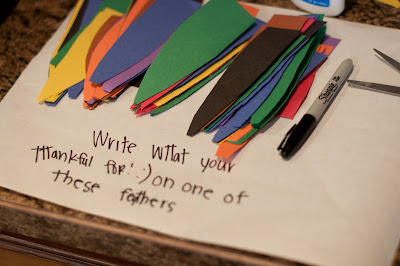 Write what your
thankful for! :) on one of
these feathers
Sharpie